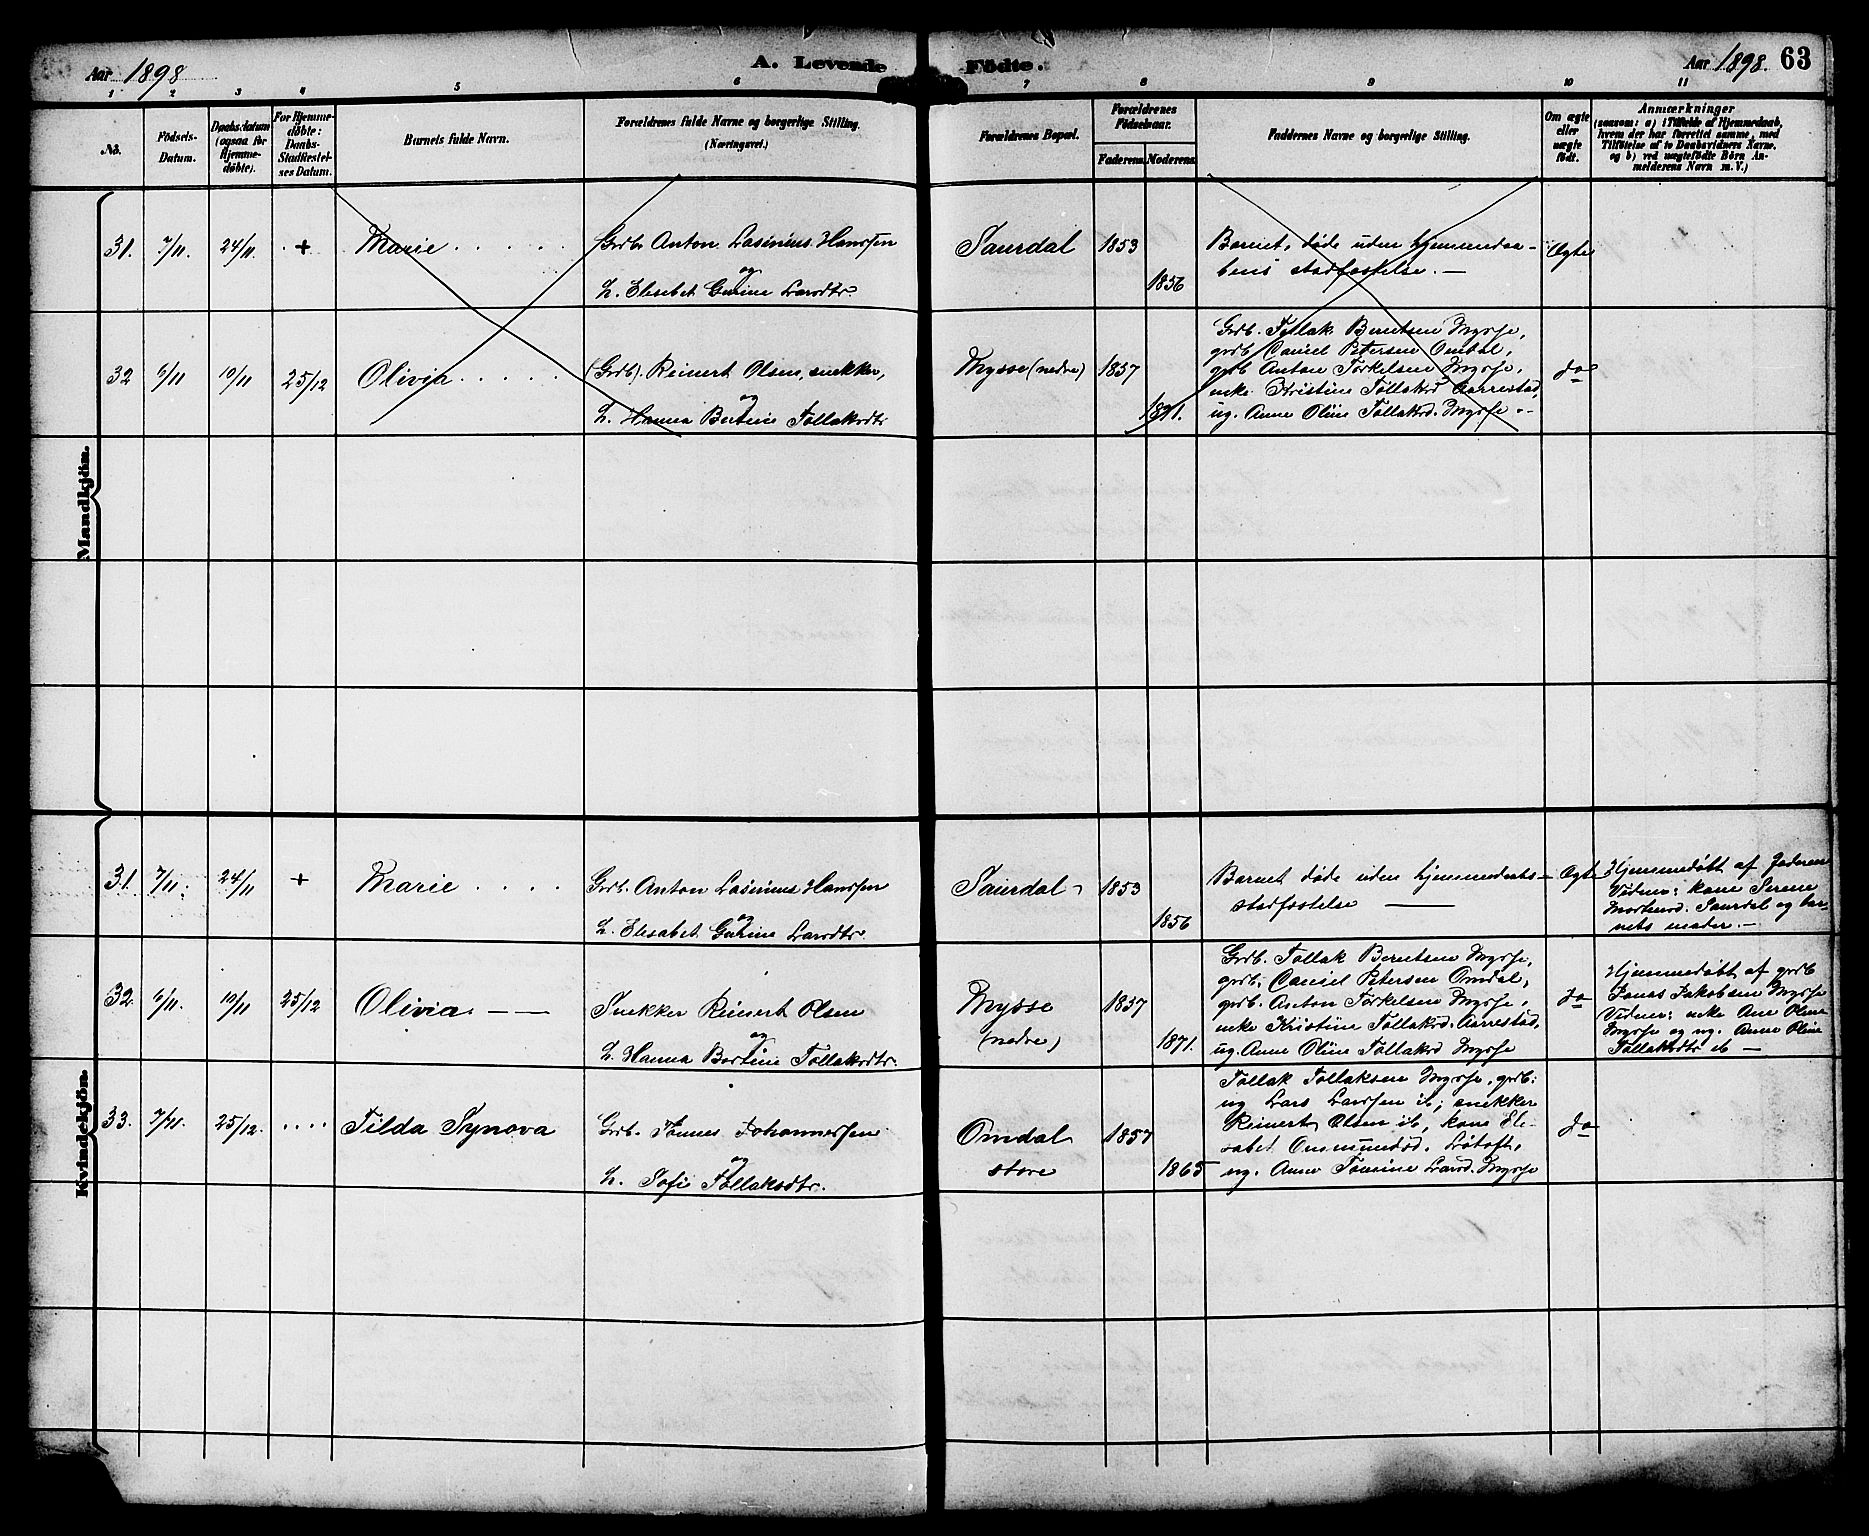 Aar 1898
A. Levende Födte.
Aar 1898. 63
1 2 3 4 5 6 7 8 9 10 11
No.
Födsels-
Datum.
Daabsdatum
(ogsaa for
Hjemme-
døbte).
For Hjemme-
døbte:
Daabs-
Stadfæstel-
ses Datum.
Barnets fulde Navn.
Forældrenes fulde Navne og borgerlige Stilling.
(Næringsvei.)
Forældrenes Bopæl.
Forældrenes
Födselsaar.
Faderens. Moderens.
Faddernes Navne og borgerlige Stilling.
Om ægte
eller
uægte
født.
Anmærkninger
(saasom: a) i Tilfælde af Hjemmedaab,
hvem der har forrettet samme, med
Tilföielse af to Daabsvidners Navne,
og b) ved uægtefödte Börn An-
melderens Navn m. V.)
Mandkjön.
31. 7/11. 24/11. + Marie . . . . . Grdb. Anton Lasinius Hanssen
og
h. Elisabet Gurine Larsdtr.
Saurdal 1853
1856
Barnet døde uden hjemmedaa-
bens stadfæstelse. —
Ægte
32 6/11 10/11 25/12 Olivia . . . . . (Grdb). Reinert Olsen, snekker,
og
h. Hanna Bertine Tollaksdtr
Mysse (nedre) 1837
1871.
Grdb. Tollak Berntsen Mysse,
grdb. Daniel Petersen Omdal,
grdb Anton Torkelsen Mysse,
enke Kristine Tollaksd Aarrestad,
ug. Anne Oline Tollaksd. Mysse.-
do
Kvindekjön.
31. 7/11. 24/11 + Marie . . . . Grdb. Anton Lasinius Hanssen
og
h. Elisabet Gurine Larsdtr.
Saurdal 1853
1856
Barnet døde uden hjemmedaabs-
stadfæstelse —
Ægte
Hjemmedøbt af Jordmor
Vidner: kone Serine
Mortensd. Saurdal og bar-
nets moder. —
32. 6/11. 10/11 25/12 Olivia. — — Snekker Reinert Olsen
og
h. Hanna Bertine Tollaksdtr.
Mysse
(nedre)
1837
1871.
Grdb. Tollak Berntsen Mysse,
grdb. Daniel Petersen Omdal,
grdb. Anton Torkelsen Mysse,
enke Kristine Tollaksd. Aarrestad,
ug. Anne Oline Tollaksd Mysse
do
Hjemmedøbt af grdb
Jonas Jakobsen Mysse
Vidner: enke Ane Oline
Mysse og ug. Anne Oline
Tollaksdtr ib —
33. 7/11. 25/12. . . . . Tilda Synova Grdb. Tønnes Johannessen
og
h. Sofie Tollaksdtr.
Omdal
store
1857
1865
Tollak Tollaksen Mysse, grdb:
ug Lars Larssen ib, snekker
Reinert Olsen ib, kone Eli-
sabet Ommundsd. Løtoft,
ug. Anne Tomine Larsd. Mysse
do